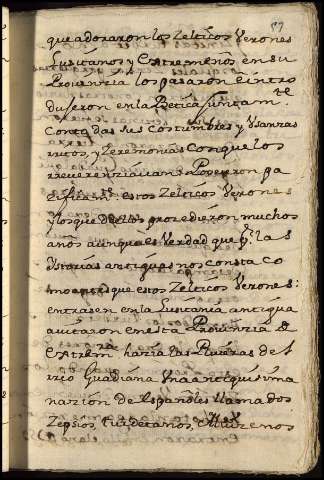 que adoraron los Zelticos Verones
Lusitanos y Extremeños en su
Provinzia los pasaron e intro
duseron en la Betica Juntam.te
Con todas sus Costumbres y Usanzas
ritos, y Zeremonias Con que los
reverenziavan Poseyeron pa
zificam.te estos Zelticos Verones
y los que dellos prozedieron muchos
años aunque es Verdad que p.r las
Ystorias antiguas nos consta Co
mo antes que estos Zelticos Verones
entrasen en la Lusitania antigua
avitaron en esta Provinzia de
Extrem.ra hazia las Riveras del
rrio Guadiana Una antiquisima
nazion de Españoles llamados
Zepsios, turdetanos,